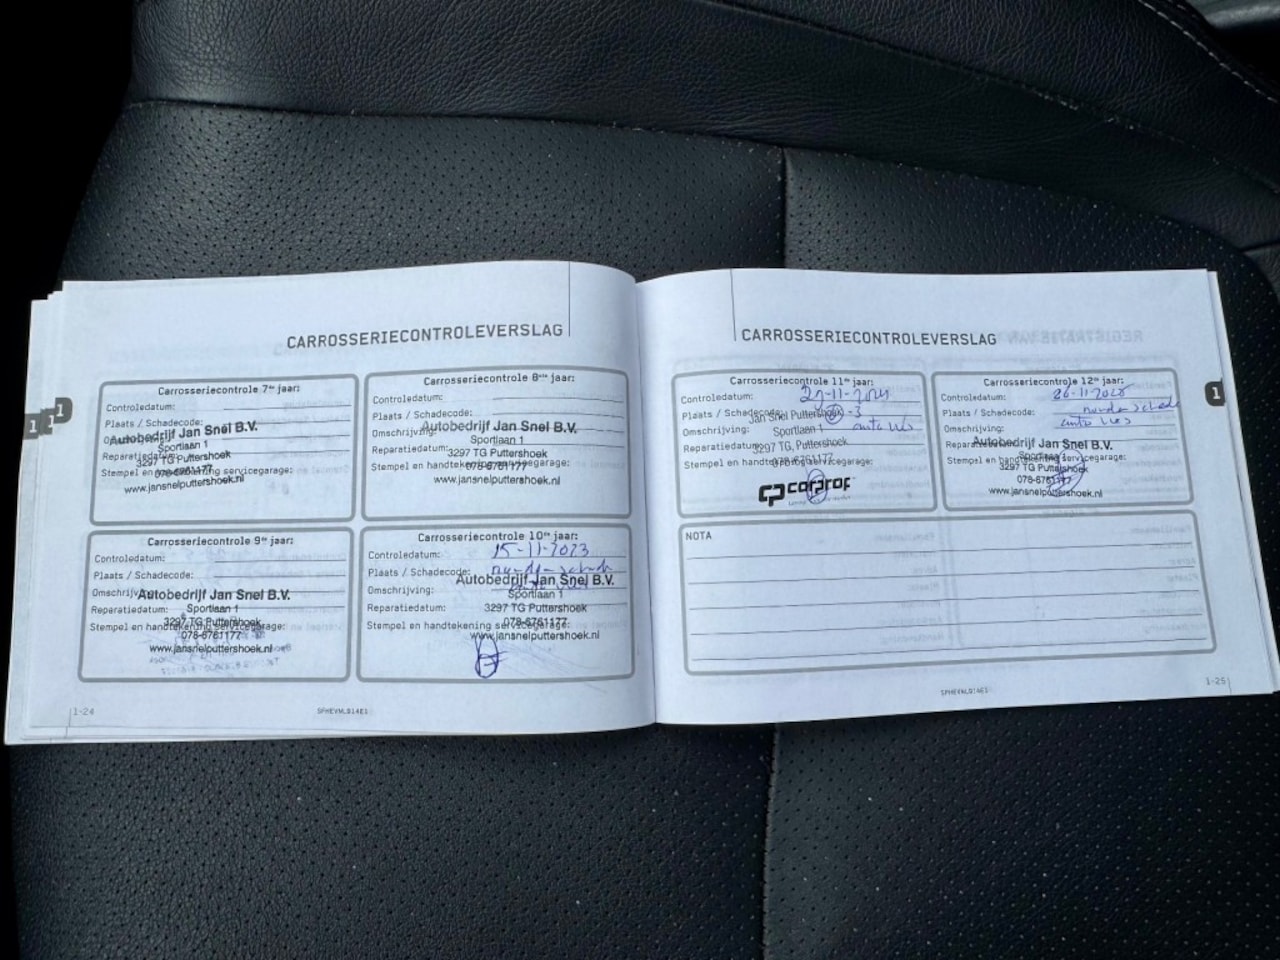 CARROSSERIECONTROLEVERSLAG
Carrosseriecontrole 7de jaar:
Controledatum:
Plaats / Schadecode:
Autobedrijf Jan Snel B.V.
Sportlaan 1
Reparatiedatum:
3297 TG Puttershoek
Stempel en handtekening servicegarage:
078-6761177
www.jansnelputtershoek.nl
Carrosseriecontrole 8ste jaar:
Controledatum:
Plaats / Schadecode:
Omschrijving:
Autobedrijf Jan Snel B.V.
Sportlaan 1
Reparatiedatum:
3297 TG Puttershoek
Stempel en handtekening servicegarage:
078-6761177
www.jansnelputtershoek.nl
Carrosseriecontrole 9de jaar:
Controledatum:
Plaats / Schadecode:
Omschrijving:
Autobedrijf Jan Snel B.V.
Reparatiedatum:
Sportlaan 1
3297 TG Puttershoek
Stempel en handtekening servicegarage:
078-6761177
www.jansnelputtershoek.nl
Carrosseriecontrole 10de jaar:
Controledatum: 15-11-2023
Plaats / Schadecode:
Autobedrijf Jan Snel B.V.
Omschrijving:
Sportlaan 1
Reparatiedatum:
3297 TG Puttershoek
Stempel en handtekening servicegarage:
078-6761177
www.jansnelputtershoek.nl
1-24
SPHEVNLB14E1
CARROSSERIECONTROLEVERSLAG
Carrosseriecontrole 11de jaar:
Controledatum:
Plaats / Schadecode:
Jan Snel Puttershoek
Omschrijving:
Sportlaan 1
Reparatiedatum:
3297 TG, Puttershoek
078-6761177
Stempel en handtekening servicegarage:
carprof
Carrosseriecontrole 12de jaar:
Controledatum:
Plaats / Schadecode:
Omschrijving:
Reparatiedatum:
Autobedrijf Jan Snel B.V.
Sportlaan 1
Stempel en handtekening servicegarage:
3297 TG Puttershoek
078-6761177
www.jansnelputtershoek.nl
NOTA
SPHEVNLB14E1
1-25
1
1